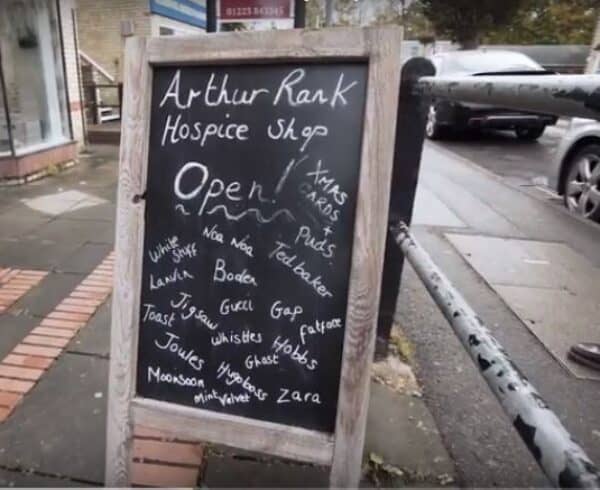 01223 843345
Arthur Rank
Hospice Shop
Open!
XMAS
CARDS
+
Puds
White
Stuff
Noa Noa
Ted baker
Lanvin
Boden
Toast
Jigsaw
Gucci
Gap
fatface
Whistles
Hobbs
Joules
Ghost
Moonsoon
Hugoboss
Mint Velvet
Zara